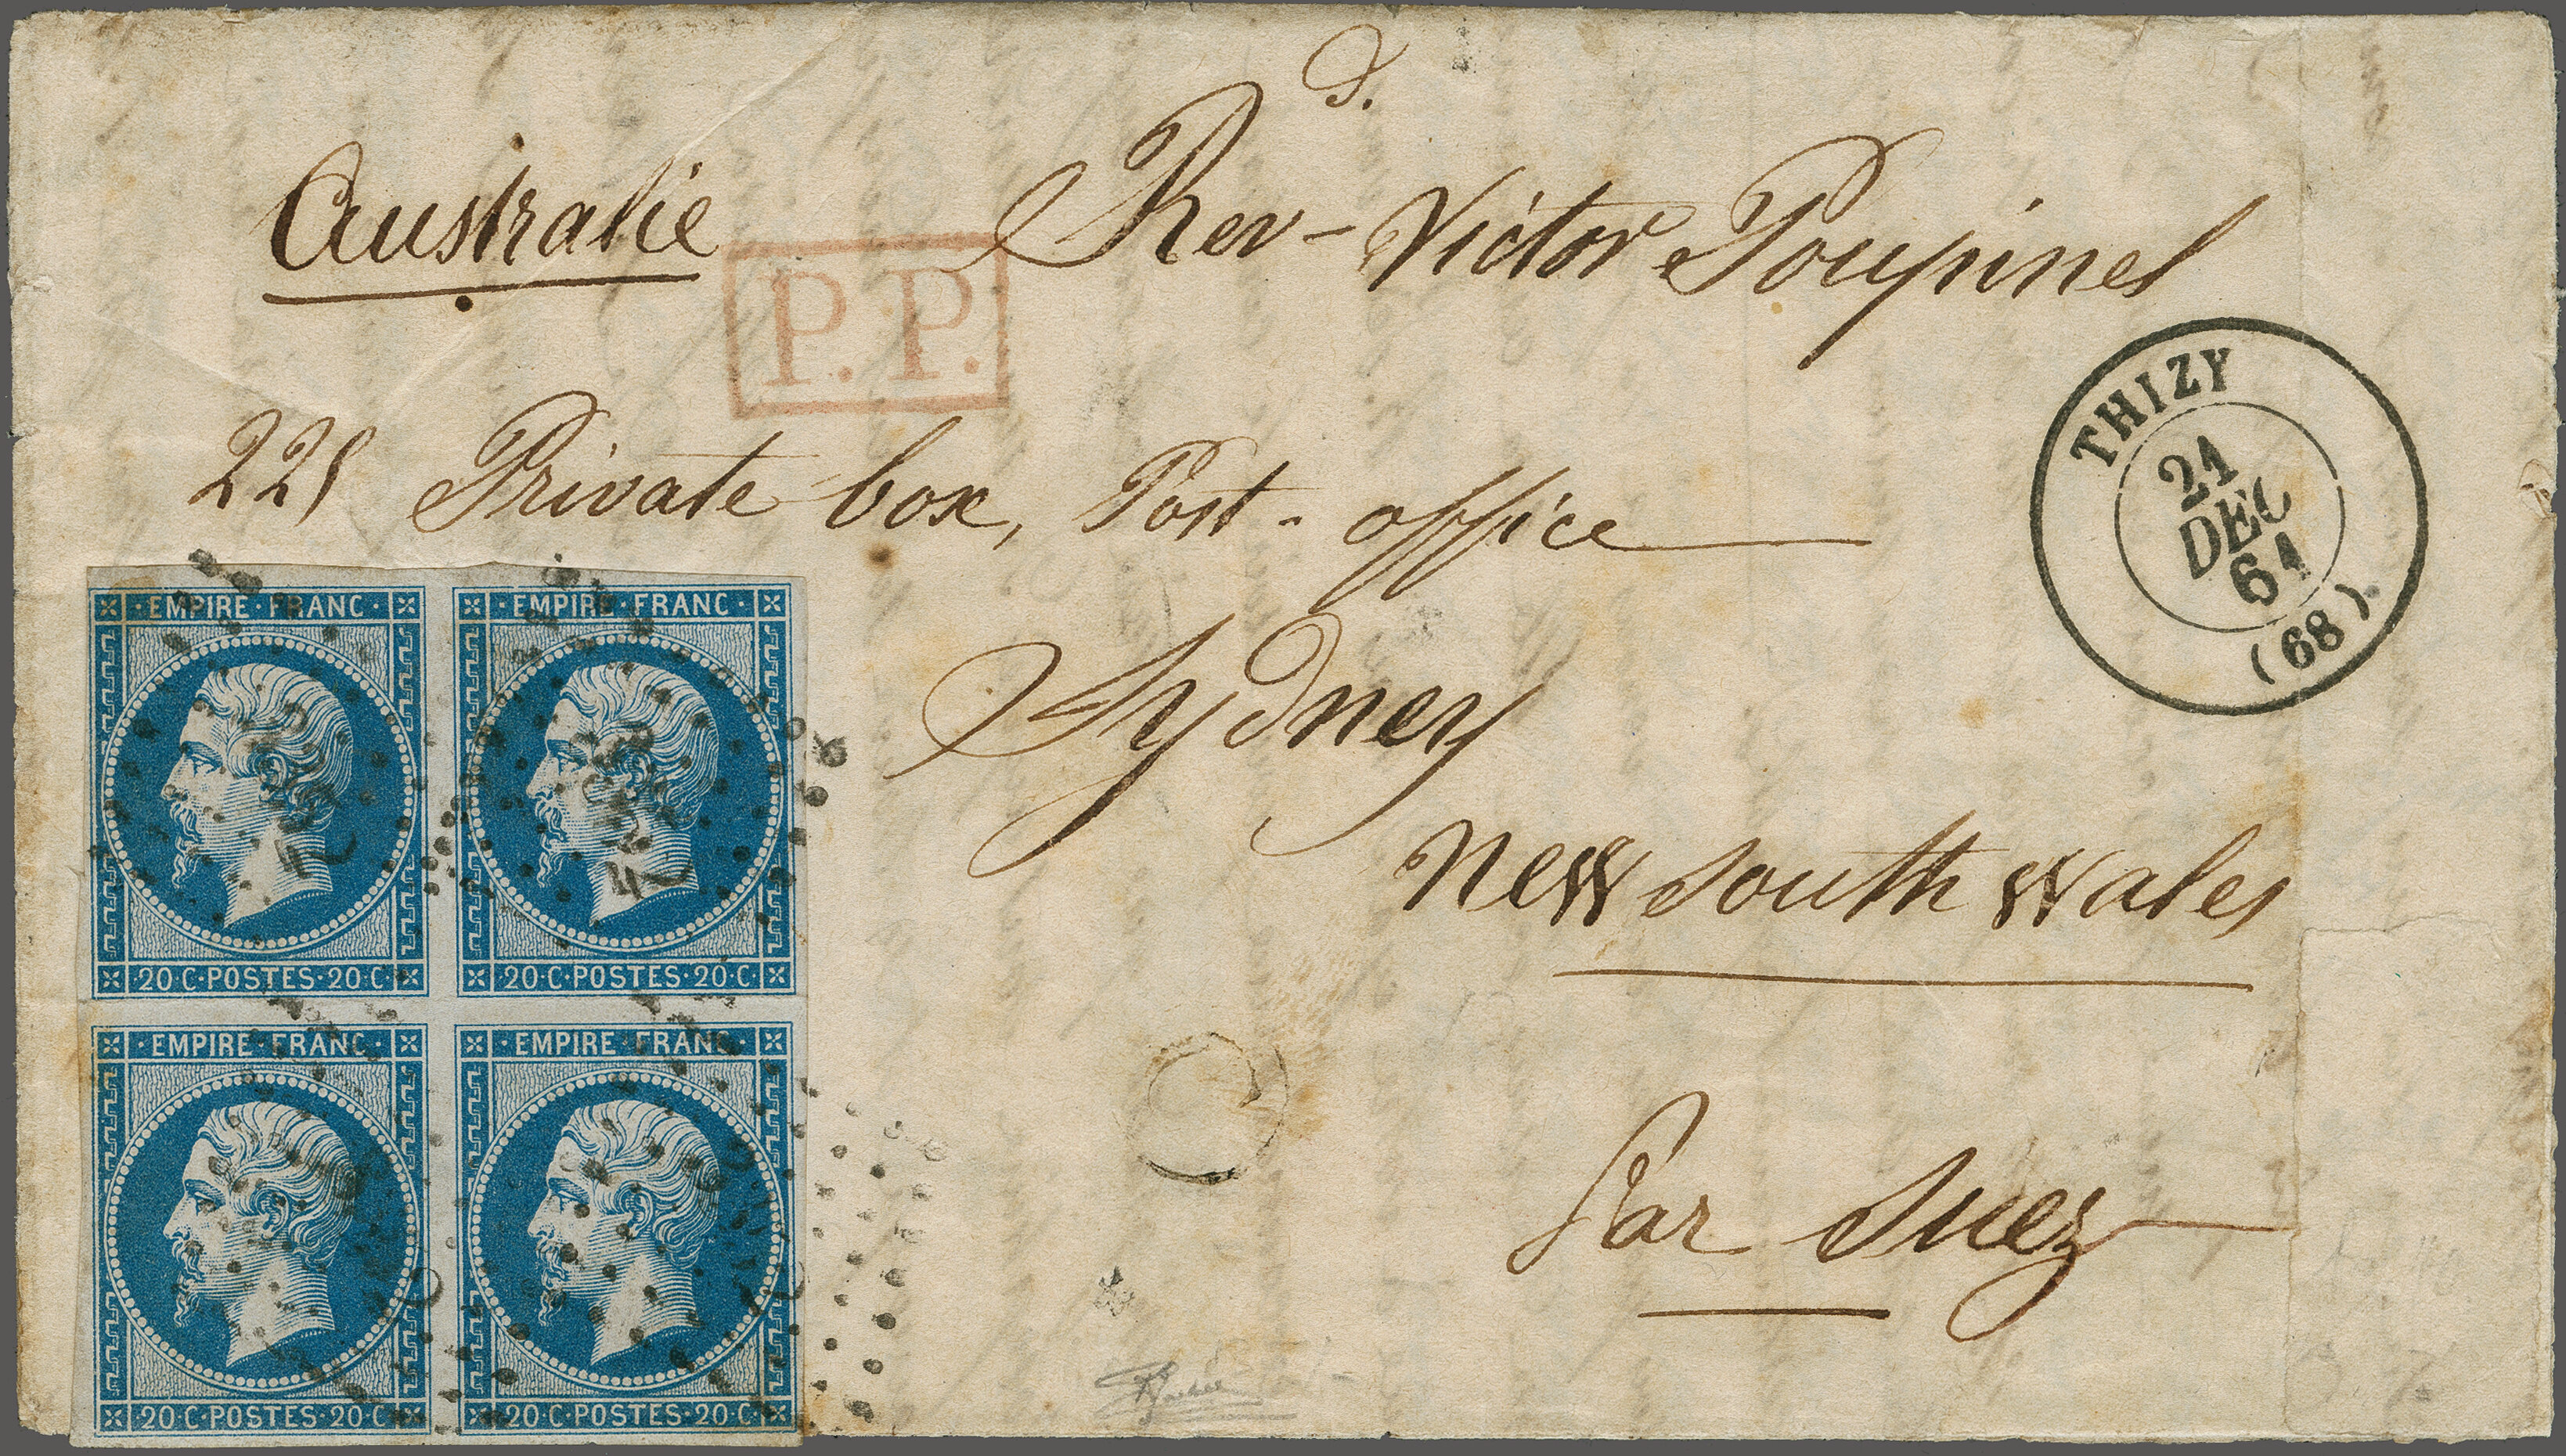 Australie
P.P.
Rev-d. Victor Poupinel
225 Private box, Post-office
Sydney
New South Wales
Par Suez
THIZY
21
DEC
61
(68)
EMPIRE·FRANC·
20·C·POSTES·20·C·
EMPIRE·FRANC·
20·C·POSTES·20·C·
EMPIRE·FRANC·
20·C·POSTES·20·C·
EMPIRE·FRANC·
20·C·POSTES·20·C·